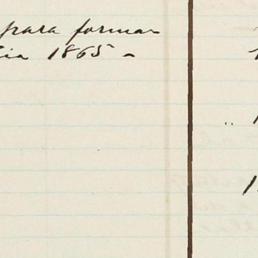 para formar
cia 1865 -